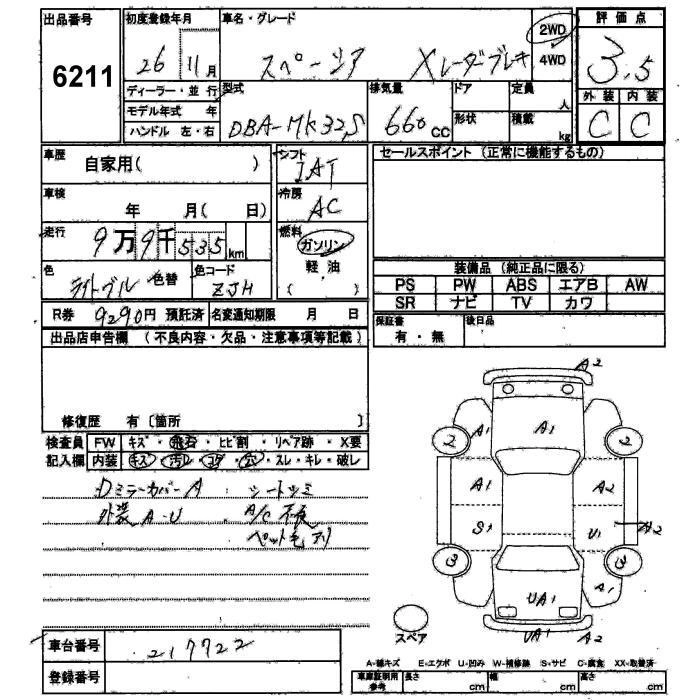 出品番号
6211
初度登録年月
26 11月
車名・グレード
スペーシア Xレーダーブレーキ
2WD
4WD
評価点
3.5
外装 内装
C C
ディーラー・並行
モデル年式 年
ハンドル 左・右
型式
DBA-MK32S
排気量
660 cc
ドア
形状
定員
人
積載
kg
車歴
自家用( )
車検
年 月( 日)
走行
9万9千535km
色
ライトブル
色替
色コード
ZJH
シフト
IAT
冷房
AC
燃料
ガソリン
軽油
( )
セールスポイント (正常に機能するもの)
装備品 (純正品に限る)
PS PW ABS エアB AW
SR ナビ TV カワ
保証書
有・無
後日品
R券 9290円 預託済 名変通知期限 月 日
出品店申告欄 (不良内容・欠品・注意事項等記載)
修復歴 有〔箇所 〕
検査員 FW キズ・飛石・ヒビ割・リペア跡・X要
記入欄 内装 キズ・汚レ・コゲ・穴・スレ・キレ・破レ
DミラーカバーA シートシミ
外装A-U A/C不良
ペット毛アリ
A2
A1
A1
2
2
A1
A2
S1
U1
A2
3
3
A1
UA1
UA1
A2
スペア
車台番号
217722
登録番号
A-線キズ E-エクボ U-凹み W-補修跡 S-サビ C-腐食 XX-取替済
車庫証明用
参考
長さ cm
幅 cm
高さ cm